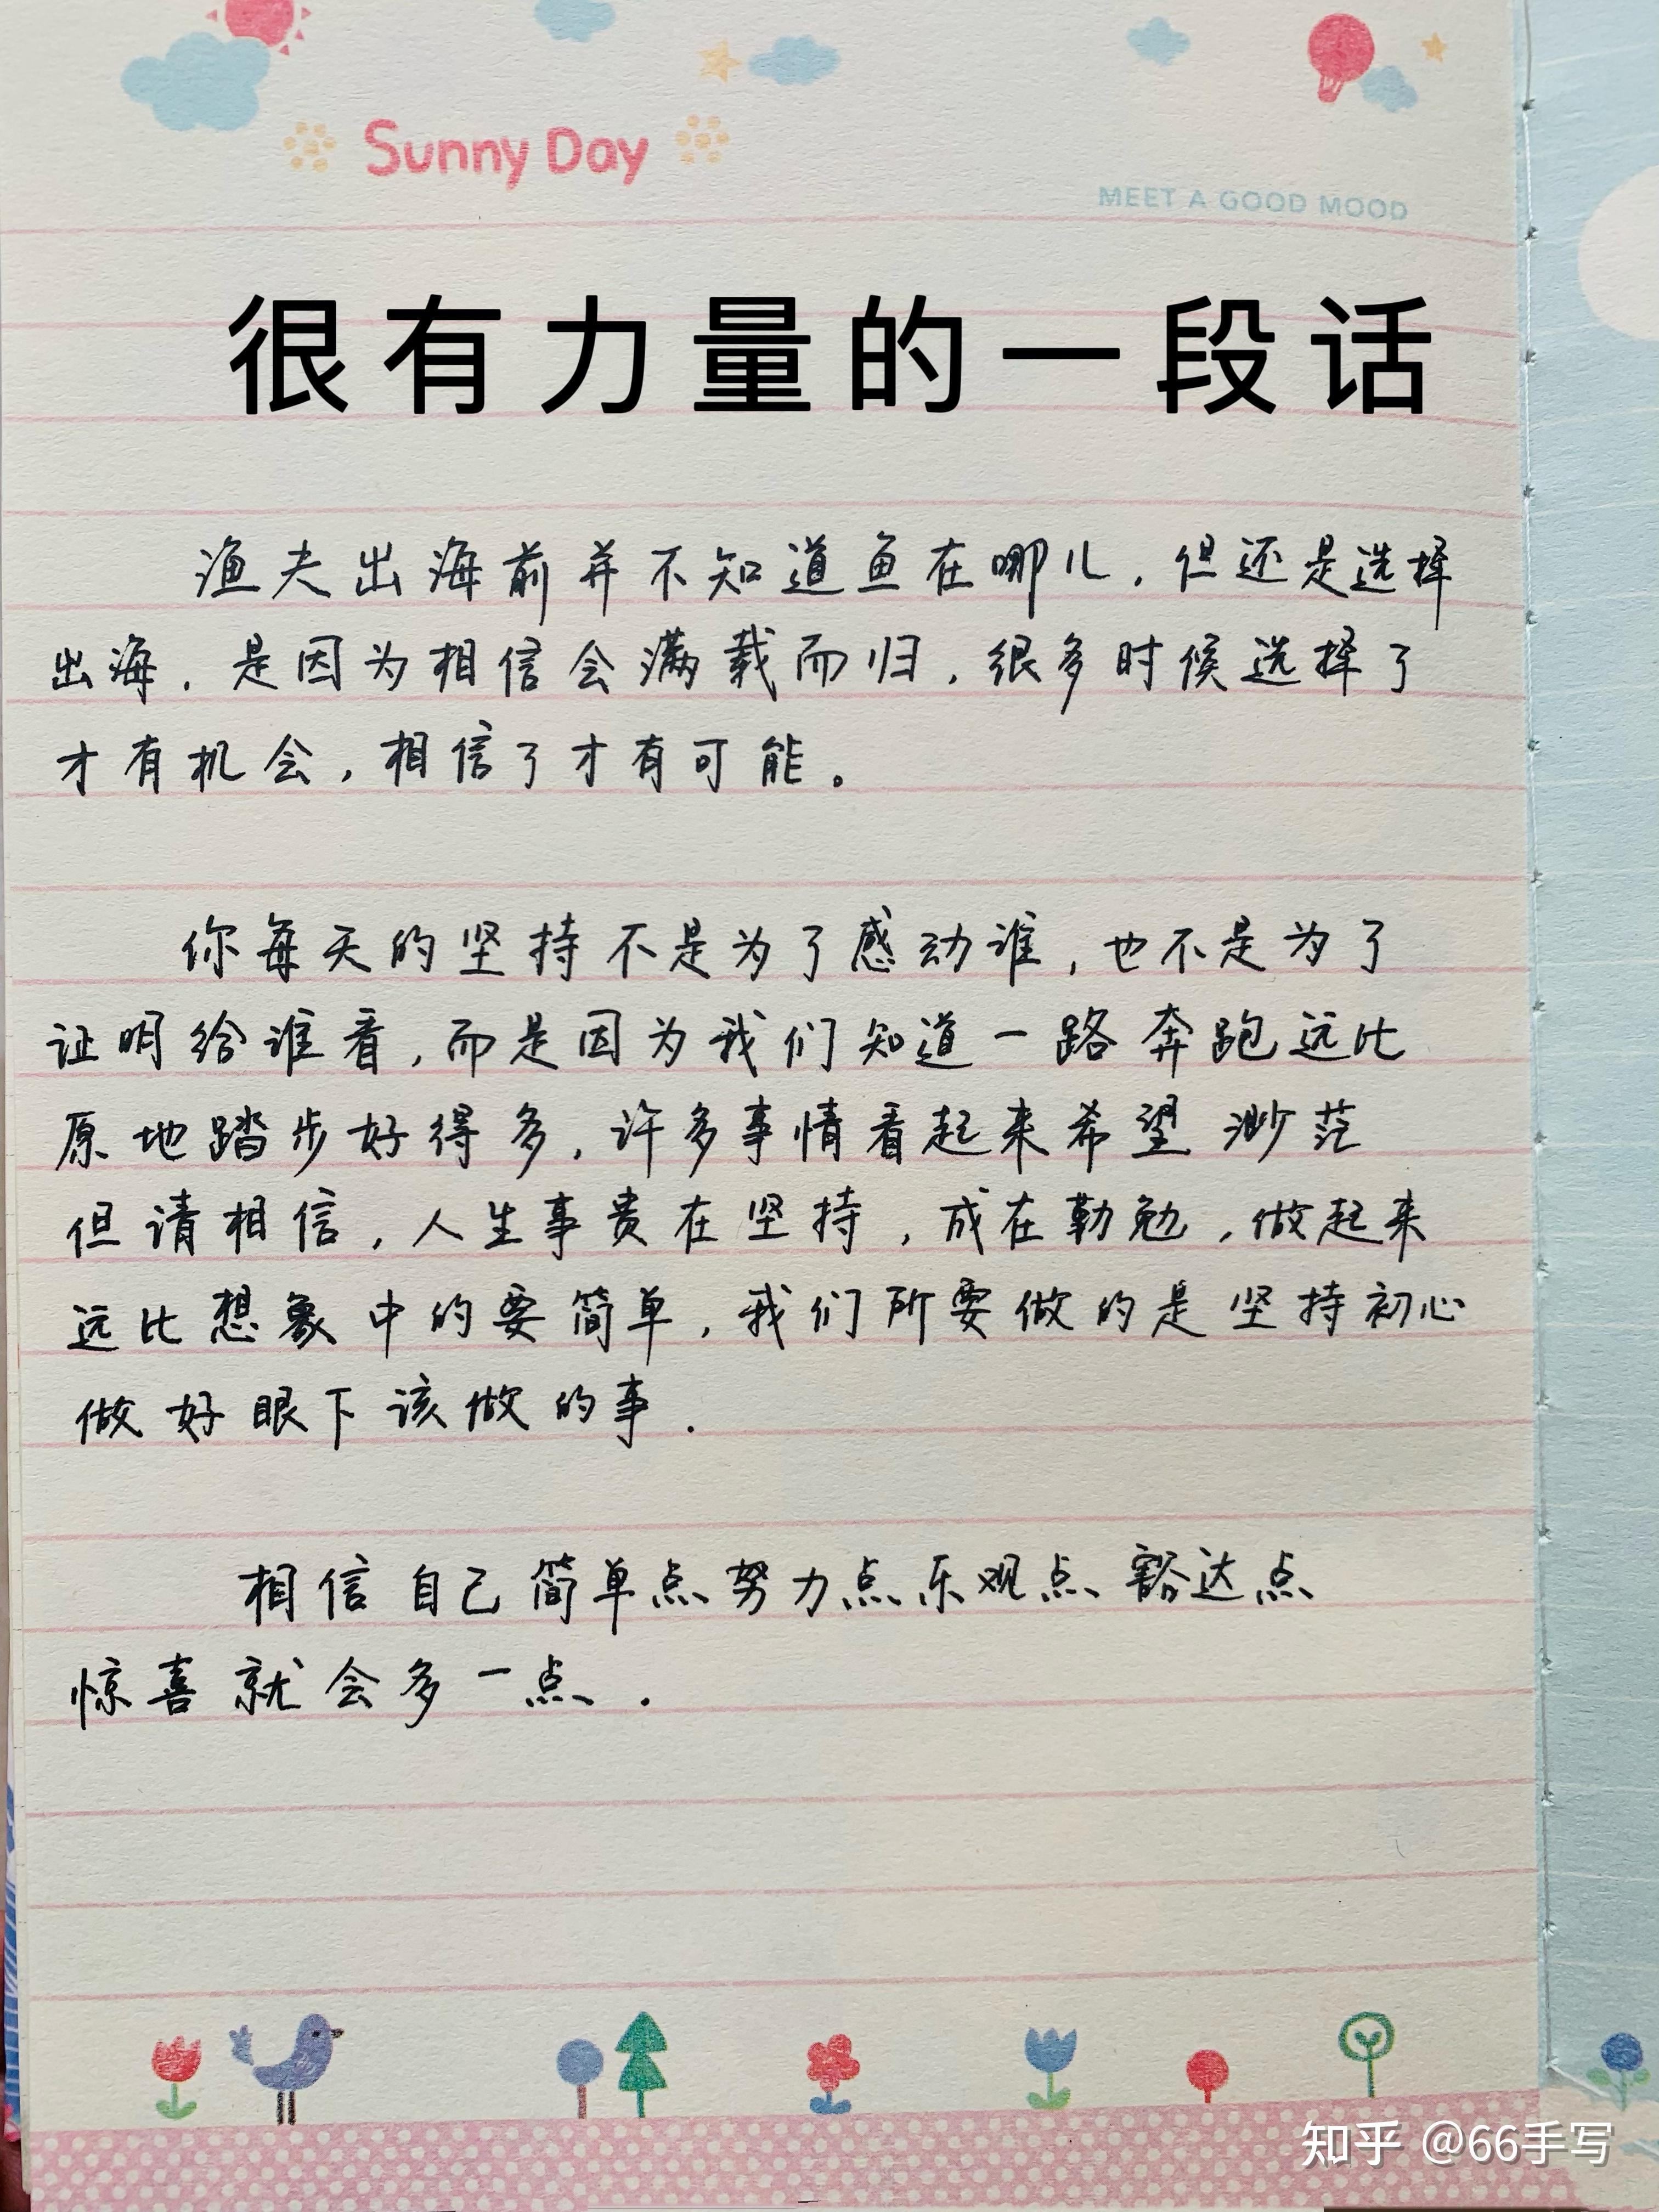 Sunny Day
MEET A GOOD MOOD
很有力量的一段话
渔夫出海前并不知道鱼在哪儿,但还是选择
出海,是因为相信会满载而归,很多时候选择了
才有机会,相信了才有可能。
你每天的坚持不是为了感动谁,也不是为了
证明给谁看,而是因为我们知道一路奔跑远比
原地踏步好得多,许多事情看起来希望渺茫
但请相信,人生事贵在坚持,成在勤勉,做起来
远比想象中的要简单,我们所要做的是坚持初心
做好眼下该做的事.
相信自己简单点努力点乐观点豁达点
惊喜就会多一点.
知乎 @66手写